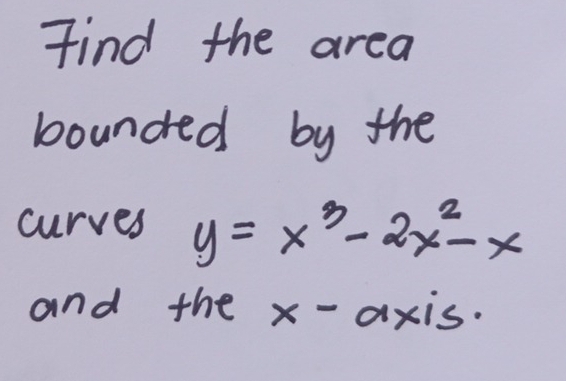 Find the area
bounded by the
curves y = x³ - 2x² - x
and the x - axis.